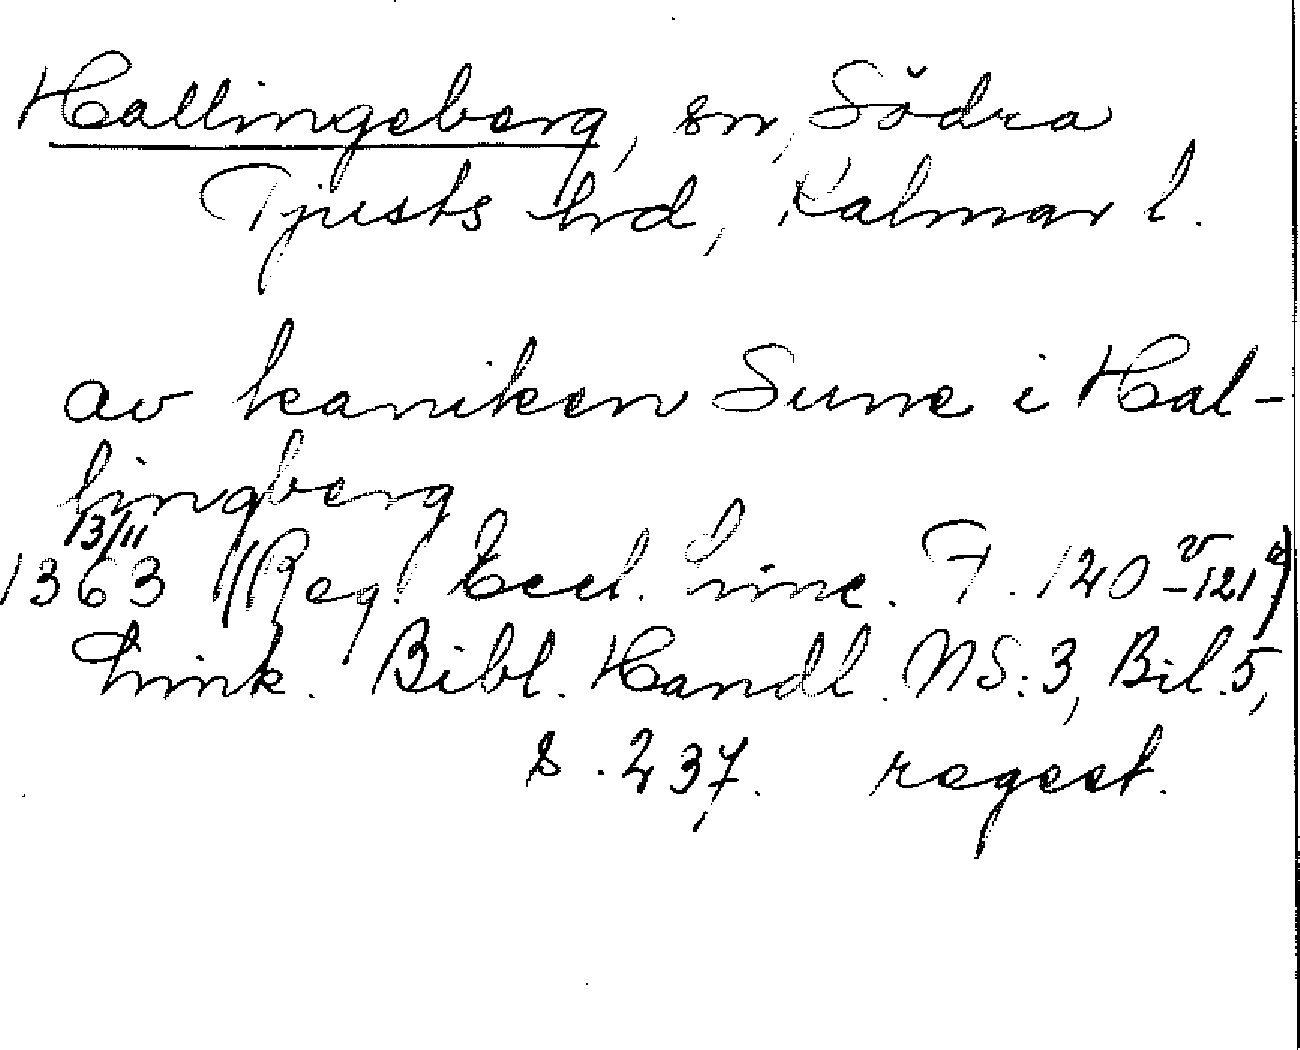 Hallingeberg, sn, Södra
Tjusts hd, Kalmar l.
av kaniken Sune i Hal-
lingberg
13/11
1363 (Reg. Eccl. Linc. F. 120 v -121 r)
Link. Bibl. Handl. NS:3, Bil.5,
s. 237. regest.